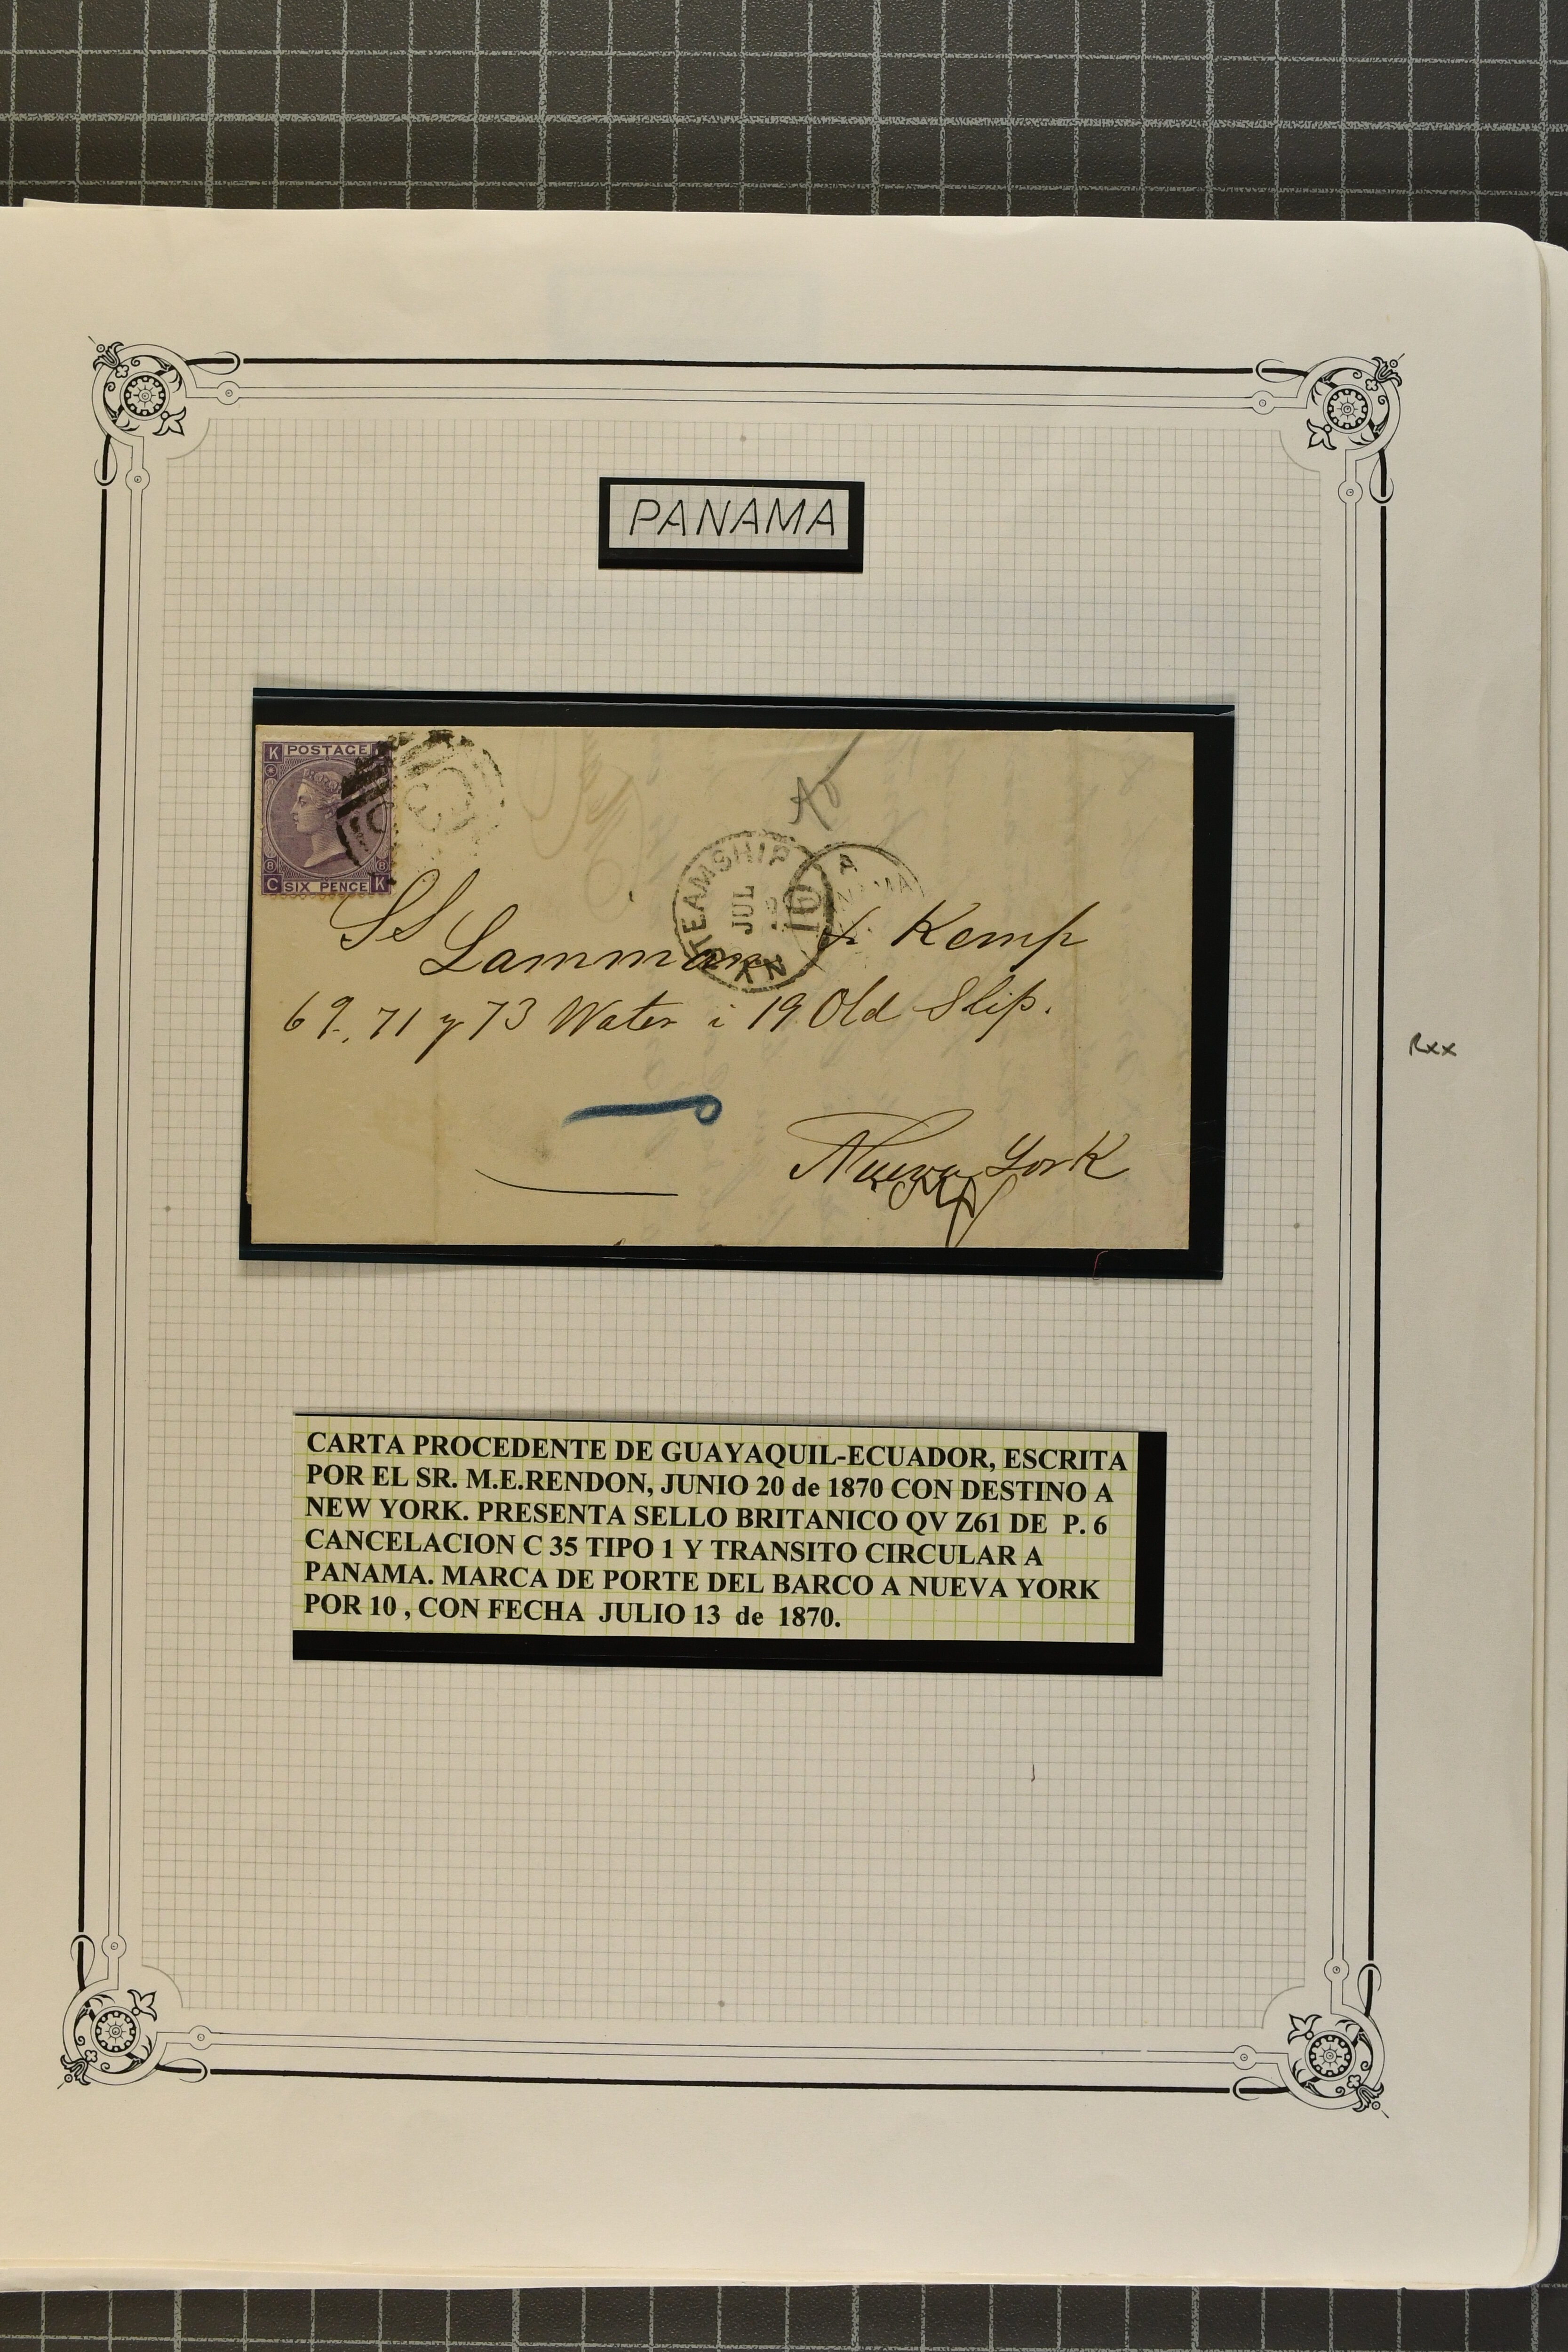 PANAMA
K POSTAGE
8 8
C SIX PENCE K
C
STEAMSHIP
JUL
10
N.Y.
A
PANAMA
SS
Lanman & Kemp
69, 71 y 73 Water i 19 Old Slip.
Nueva York
Rxx
CARTA PROCEDENTE DE GUAYAQUIL-ECUADOR, ESCRITA
POR EL SR. M.E.RENDON, JUNIO 20 de 1870 CON DESTINO A
NEW YORK. PRESENTA SELLO BRITANICO QV Z61 DE P. 6
CANCELACION C 35 TIPO 1 Y TRANSITO CIRCULAR A
PANAMA. MARCA DE PORTE DEL BARCO A NUEVA YORK
POR 10 , CON FECHA JULIO 13 de 1870.